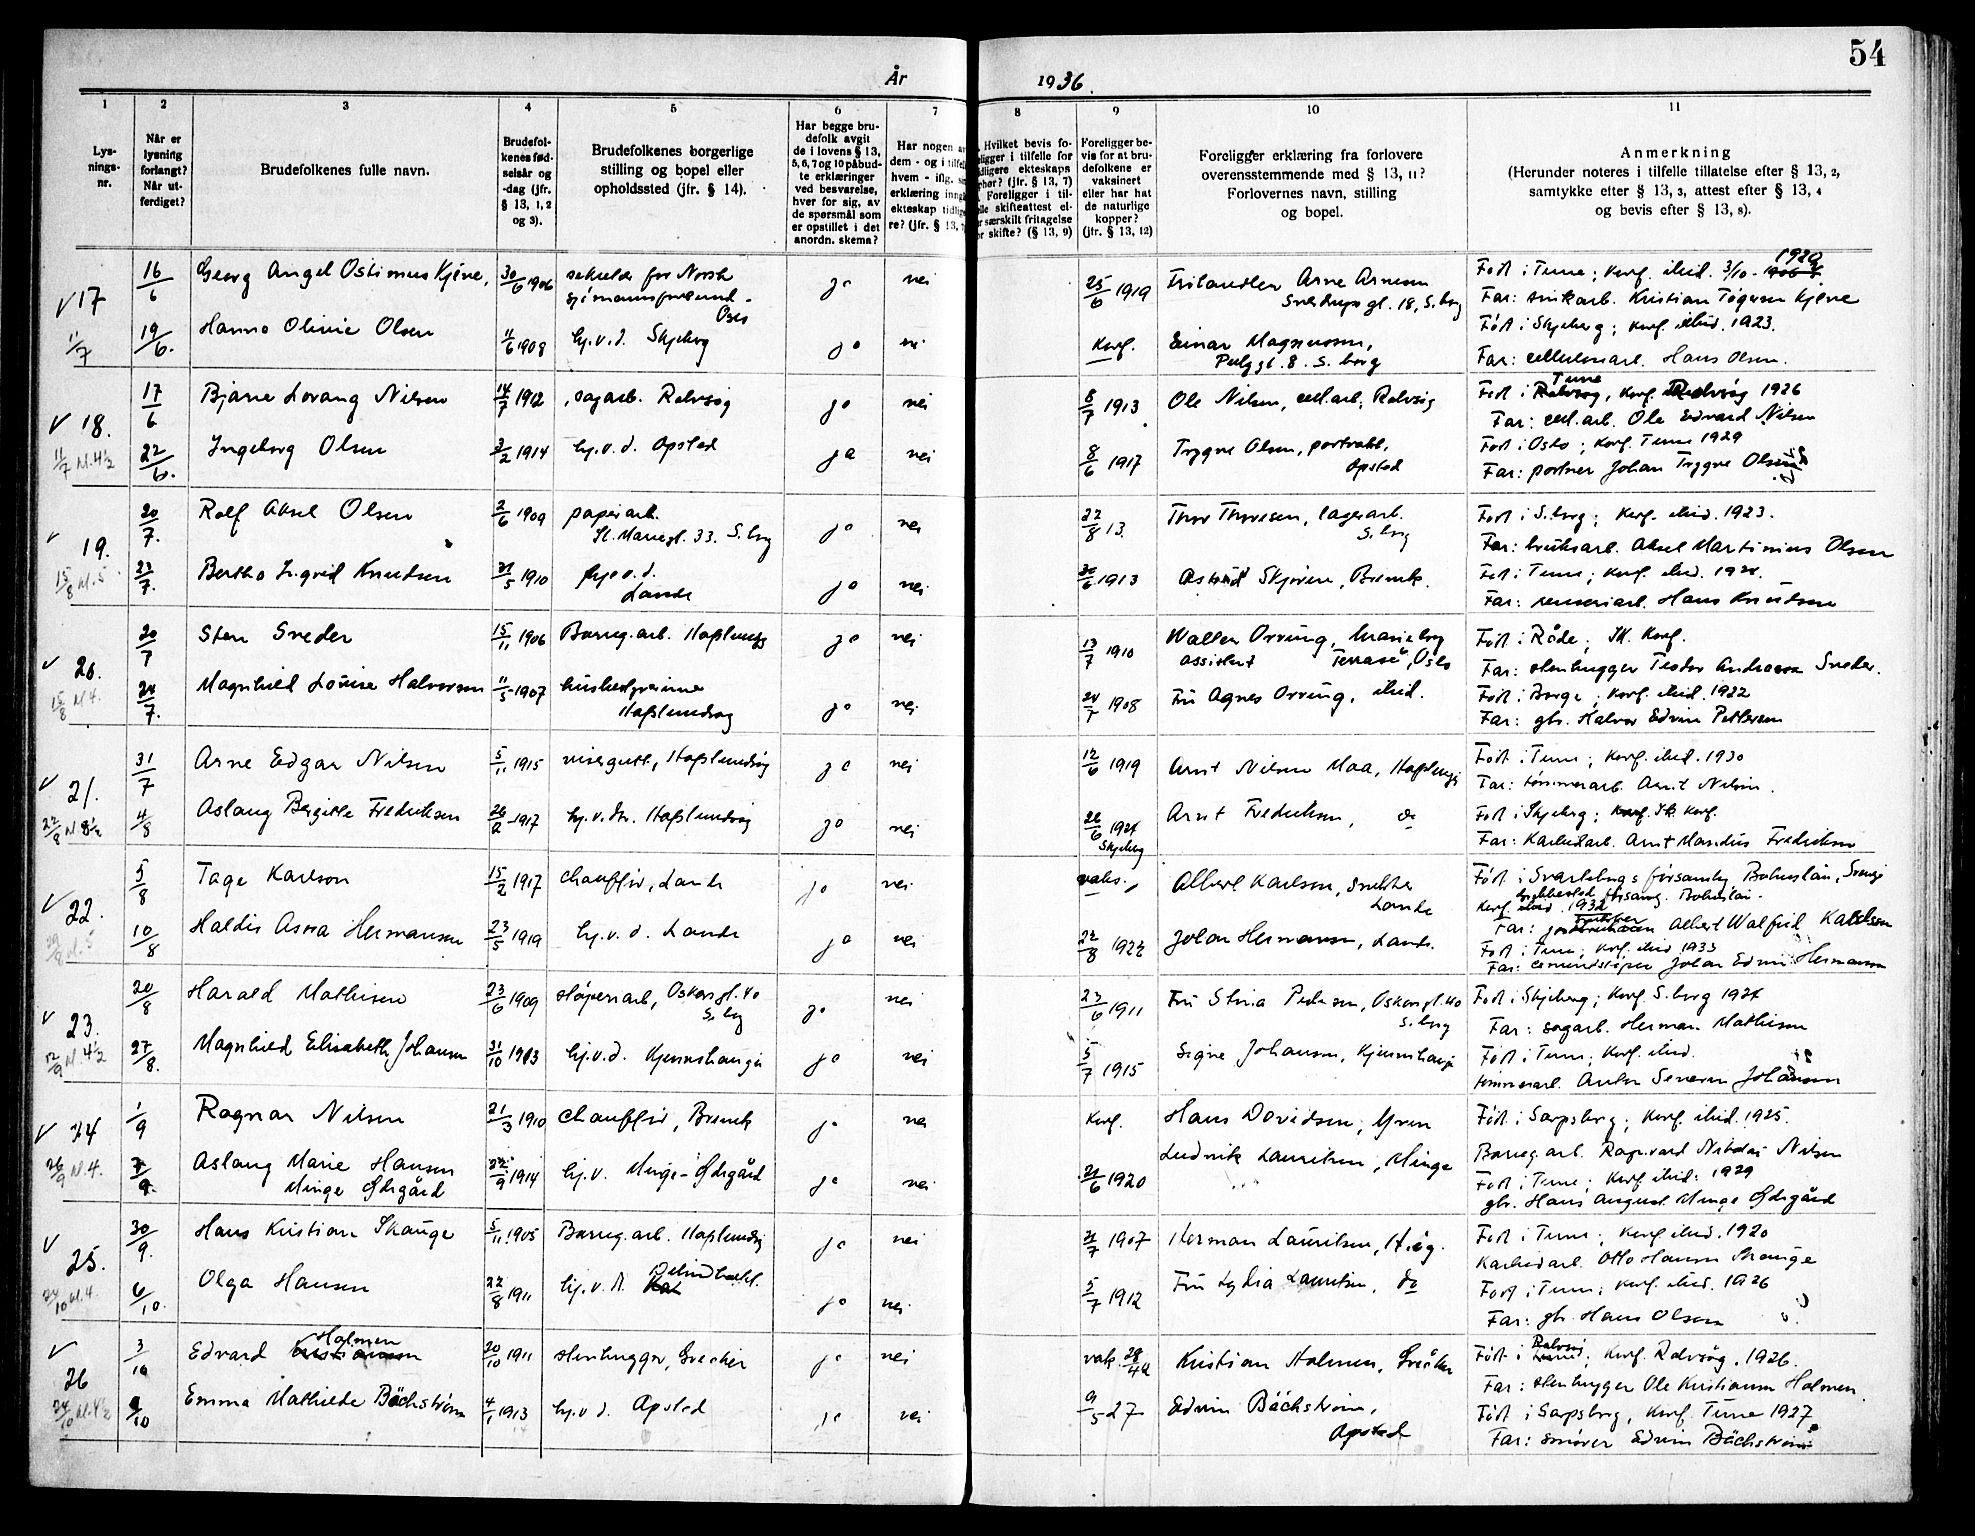 54
År 1936.
1 2 3 4 5 6 7 8 9 10 11
Lys-
nings-
nr.
Når er
lysning
forlangt?
Når ut-
ferdiget?
Brudefolkenes fulle navn.
Brudefol-
kenes fød-
selsår og
-dag (jfr.
§ 13, 1, 2
og 3).
Brudefolkenes borgerlige
stilling og bopel eller
opholdssted (jfr. § 14).
Har begge bru-
defolk avgit
de i lovens § 13,
5, 6, 7 og 10 påbud-
te erklæringer
ved besvarelse,
hver for sig, av
de spørsmål som
er opstillet i det
anordn. skema?
Har nogen a
dem - og i tilfell
hvem - iflg. s
erklæring inng
ekteskap tidlig
re? (jfr. § 13,
Hvilket bevis fo-
ligger i tilfelle for
idligere ekteskaps
phør? (jfr. § 13, 7)
Foreligger i til-
lle skifteattest el-
r særskilt fritagelse
or skifte? (§ 13, 9)
Foreligger be-
vis for at bru-
defolkene er
vaksinert
eller har hat
de naturlige
kopper?
(jfr. § 13, 12)
Foreligger erklæring fra forlovere
overensstemmende med § 13, 11?
Forlovernes navn, stilling
og bopel.
Anmerkning
(Herunder noteres i tilfelle tillatelse efter § 13, 2,
samtykke efter § 13, 3, attest efter § 13, 4
og bevis efter § 13, 8).
17 16/6 Georg Angel Ostinius Kjøne, 30/6 1906 sekretær for Norsk ja nei 25/6 1919 Arne Arnesen Født i Tune; konf. ibid. 3/10 - 1920
sjømannsforbund - Oslo Sverdrups gt. 18, S.borg Far: Kristian Kjøne
1/7 19/6. Hanna Olivie Olsen 11/6 1908 hj.v.d. Skjeberg ja nei Konf. Einar Magnussen, Født i Skjeberg; konf. ibid. 1923.
gt. 8. S.borg Far: cellulosearb. Hans Olsen.
18. 17/6 Bjarne Lorang Nilsen 14/7 1912 sagarb. Rolvsøy ja nei 8/7 1913 Ole Nilsen, cell.arb, Rolvsøy Født i Tune, konf. Rolvsøy 1926
Far: cell.arb. Ole Edvard Nilsen
11/7 kl. 4½ 22/6. Ingeborg Olsen 3/2 1914 hj.v.d. Opstad ja nei 8/6 1917 Trygve Olsen, Født i Oslo; konf. Tune 1929
Opstad Far: portner Johan Trygve Olsen
19. 20/7. Rolf Aksel Olsen 2/6 1909 papirarb. ja nei 22/8 13. Thor Thoresen, lagerarb. Født i S.borg; konf. ibid. 1923.
St. Mariegt. 33. S.borg S.borg Far: bruksarb. Aksel Martinius Olsen
15/8 kl. 5 23/7. Bertha Ingrid Knudsen 21/5 1910 hj.v.d. ja nei 1913 Astrid Skjøren, Brevik. Født i Tune; konf. ibid.
Lande Far: Hans Knudsen
20. 20/7 Sten Sneder 15/11 1906 Borreg.arb. Hafslundsøy ja nei 13/7 1910 Walter Orvung, Marieborg Født i Råde; konf.
assistent Terrasse, Oslo Far: stenhugger Teodor Andreas Sneder.
15/8 kl. 4. 24/7. Magnhild Louise Halvorsen 11/5 1907 husbestyrerinne ja nei 24/7 1908 Fru Agnes Orvung, ibid. Født i Borge; konf. ibid. 1922
Hafslundsøy Far: gbr. Halvor Edvin Pettersen
21. 31/7 Arne Edgar Nilsen 5/11 1915 visergutt, Hafslundsøy ja nei 12/6 1919 Arnt Nilsen Moa, Hafslundsøy Født i Tune; konf. ibid. 1930
Far: tømmerarb. Arnt Nilsen.
22/8 kl 8½ 4/8 Aslaug Bergitte Fredriksen 1917 hj.v.m. Hafslundsøy ja nei 26/6 Arnt Fredriksen, do Født i Skjeberg; konf.
Skjeberg Far: Karbidarb. Arnt Mandius Fredriksen
22. 5/8 Tage Karlson 15/2 1917 chauffør, Lande ja nei vaks. Albert Karlson, snekker Født i Svarteborgs församling Bohuslän, Sverige
Lande konf. 1932 Bohuslän.
Far: Albert Walfrid Karlsson
kl. 5 10/8 Haldis Asora Hermansen 23/5 1919 hj.v.d. Lande ja nei 22/8 1922 Johan Hermansen, Lande. Født i Tune; konf. ibid 1933
Far: cementstøper Johan Edvin Hermansen
23. 20/8 Harald Mathisen 23/6 1909 støperiarb, Oskarsgt. 40 ja nei 23/6 1911 Fru Stina Pedersen, Oskarsgt 40 Født i Skjeberg; konf. S.borg 1924
S.borg S.borg Far: sagarb. Herman Mathisen
12/9 kl. 4½ 27/8. Magnhild Elisabeth Johansen 31/10 1913 hj.v.d. Kjennshaugen ja nei 5/7 1915 Signe Johansen, Kjennshaugen Født i Tune; konf. ibid.
tømmerarb. Anton Severin Johansen
24 1/9 Ragnar Nilsen 21/3 1910 Chauffør, Brevik ja nei Konf. Hans Davidsen, Yven Født i Sarpsborg; konf. ibid. 1925.
Borreg.arb. Ragnvard Nikolai Nilsen
26/9 kl. 4. 7/9. Aslaug Marie Hansen 1914 hj.v. Minge-Ødegård ja nei 21/6 1920 Ludvik Lauritsen, Minge Født i Tune; konf. ibid. 1929
Minge Ødegård gbr. Hans August Minge Ødegård
25. 30/9. Hans Kristian Skauge 5/11 1905 Borreg.arb. Hafslundsøy ja nei 21/7 1907 Herman Lauritsen, H.øy. Født i Tune; konf. ibid. 1920
Karbidarb. Otto Hansen Skauge
24/10 kl. 4. 6/10. Olga Hansen 22/8 1911 hj.v.d. ja nei 5/7 1912 Fru Lydia Lauritsen, do Født i Tune; konf. ibid. 1926
Far: gbr Hans Olsen
26 3/10 Edvard Holmen 20/10 1911 stenhugger, Greåker ja nei vak. Kristian Holmen, Greåker Født i Rolvsøy; konf. Rolvsøy. 1926.
Far: stenhugger Ole Kristiansen Holmen.
24/10 kl. 4½ 9/10 Emma Mathilde Bäckstrøm 4/1 1913 hj.v.d. Opstad ja nei 9/5 27 Edvin Bäckstrøm, Født i Sarpsborg, konf. Tune 1927
Opstad Far: smører Edvin Bäckstrøm